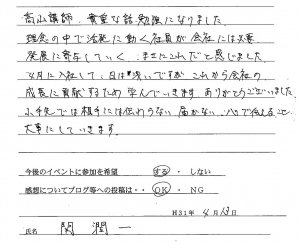 高山講師、貴重な話勉強になりました。
理念の中で活発に動く社員が会社には必要
発展に寄与していく、まさにこれだと感じました。
4月に入社して、日は浅いですが これから会社の
成長に貢献するため 学んでいきます。ありがとうございました。
小手先では相手には伝わらない 届かない。ハートで伝えること
大事にしていきます。
今後のイベントに参加を希望 する ・ しない
感想についてブログ等への投稿は・・ OK ・ NG
H31年 4月 13日
氏名 関 潤一